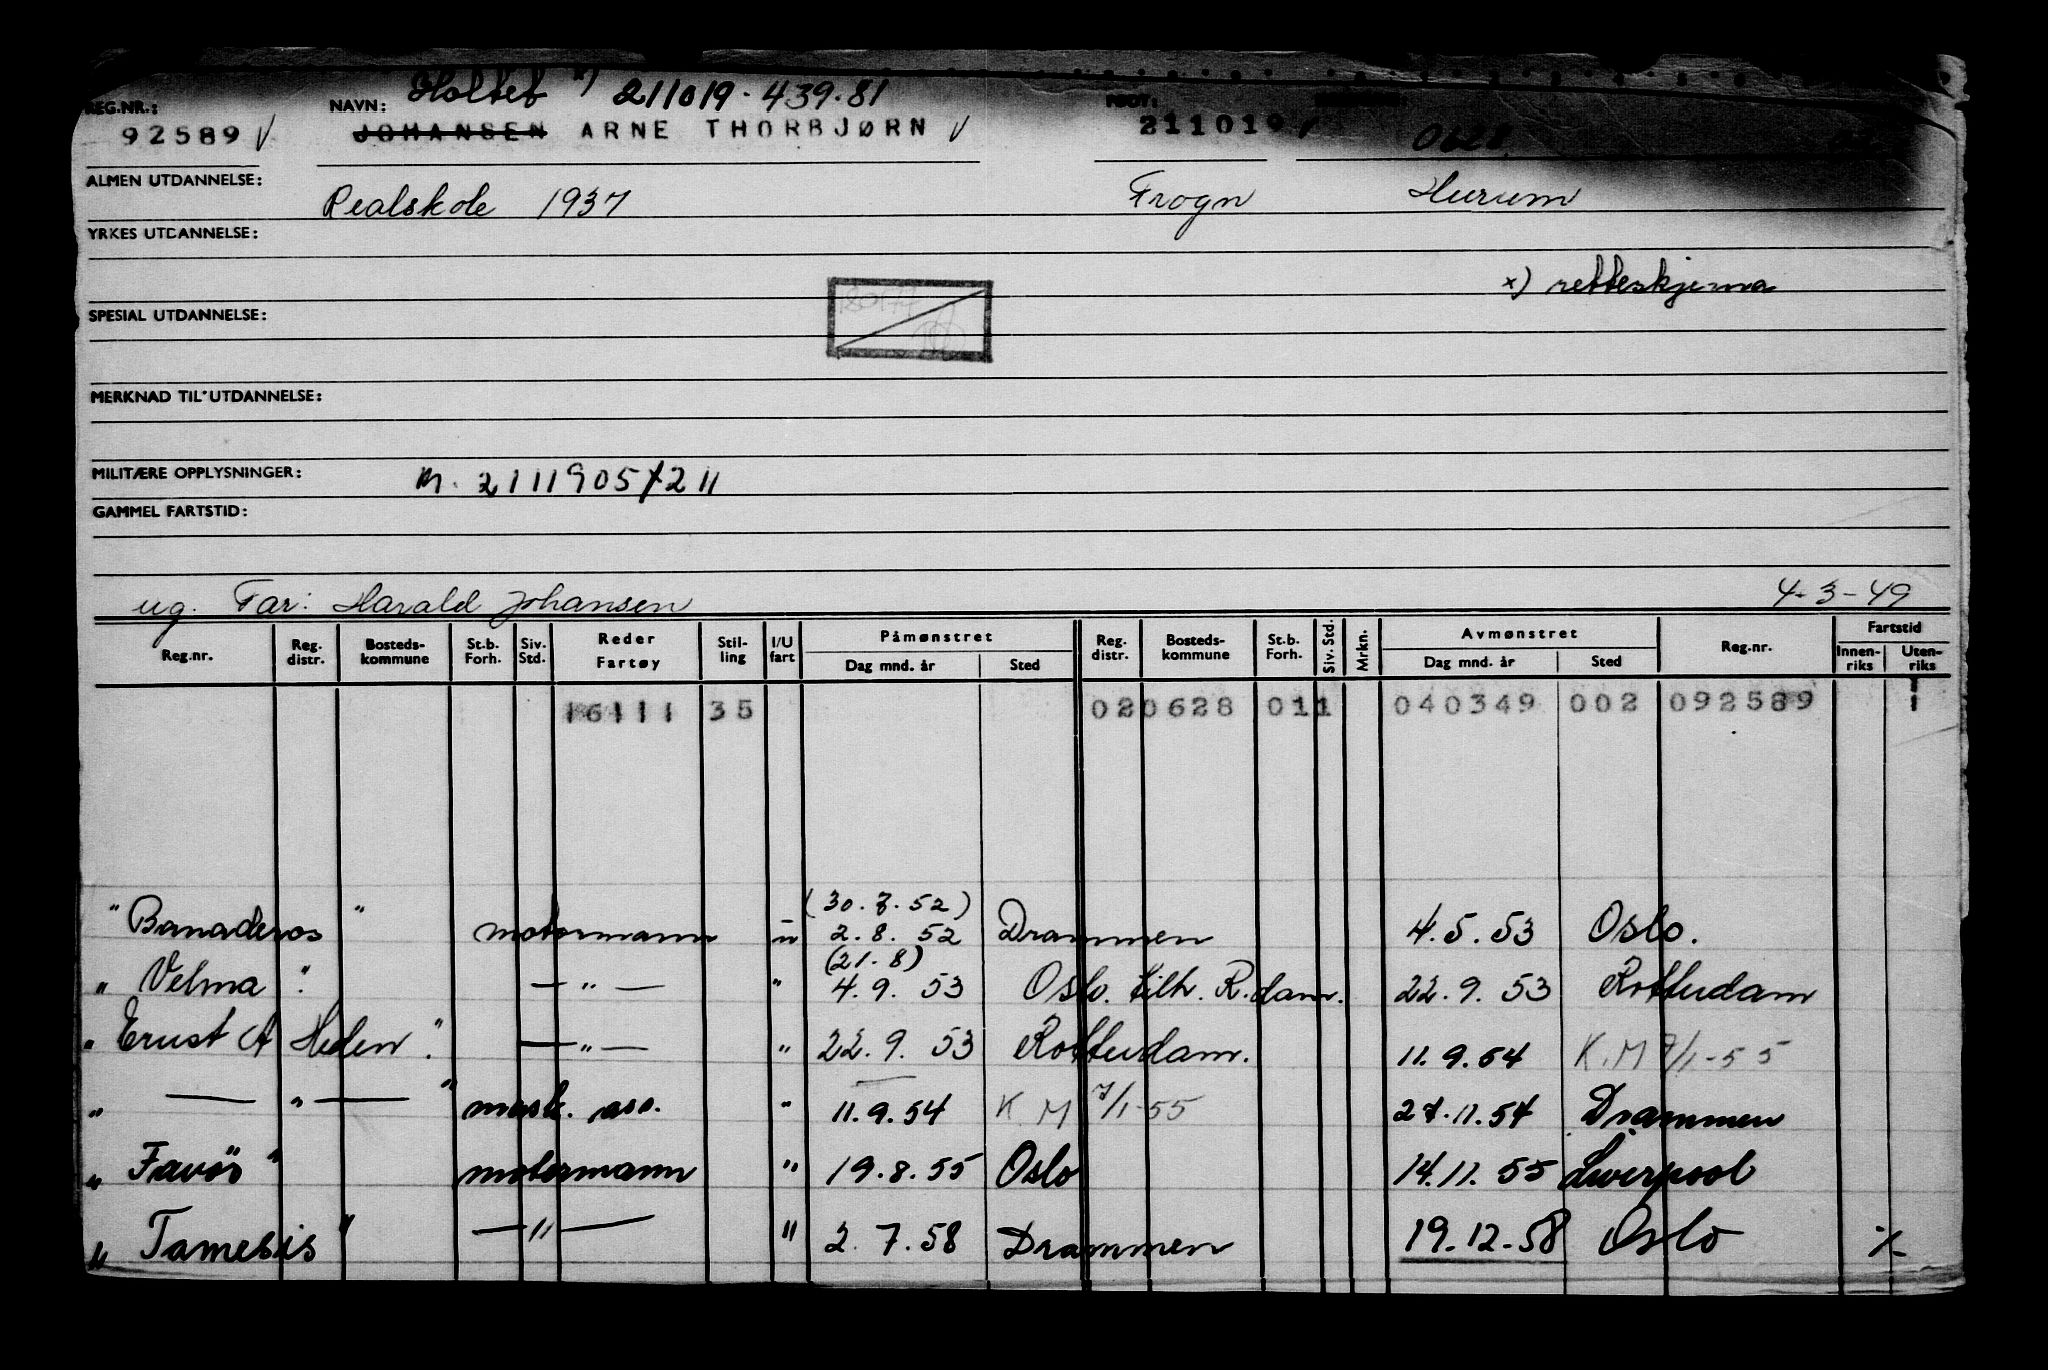 Holtet x) 211019. 439.81
REG.NR.: NAVN: FØDT:
92589 V JOHANSEN ARNE THORBJØRN V 211019 0628
ALMEN UTDANNELSE: Realskole 1937 Frogn Hurum
YRKES UTDANNELSE:
x) retteskjema
SPESIAL UTDANNELSE:
MERKNAD TIL UTDANNELSE:
MILITÆRE OPPLYSNINGER: M. 2111905/211
GAMMEL FARTSTID:
ug. Far: Harald Johansen 4-3-49
Reg.nr. Reg. distr. Bosteds-kommune St.b. Forh. Siv. Std. Reder Fartøy Stil-ling I/U fart Påmønstret Dag mnd. år Sted Reg. distr. Bosteds-kommune St.b. Forh. Siv. Std. Mrkn. Avmønstret Dag mnd. år Sted Reg.nr. Fartstid Innen-riks Uten-riks
16111 35 020628 011 040349 002 092589 1
(30.7.52)
" Banaderos " motormann u 2.8.52 Drammen 4.5.53 Oslo.
(21.8)
" Velma " — " — " 4.9.53 Oslo. tilh. R.dam. 22.9.53 Rotterdam
" Ernst A Heden " — " — " 22.9.53 Rotterdam. 11.9.54 K.M 7/1-55
" — " — " mask. ass. " 11.9.54 K M 7/1-55 27.11.54 Drammen
" Favør " motormann " 19.8.55 Oslo 14.11.55 Liverpool
" Tamesis " — " — " 2.7.58 Drammen 19.12.58 Oslo